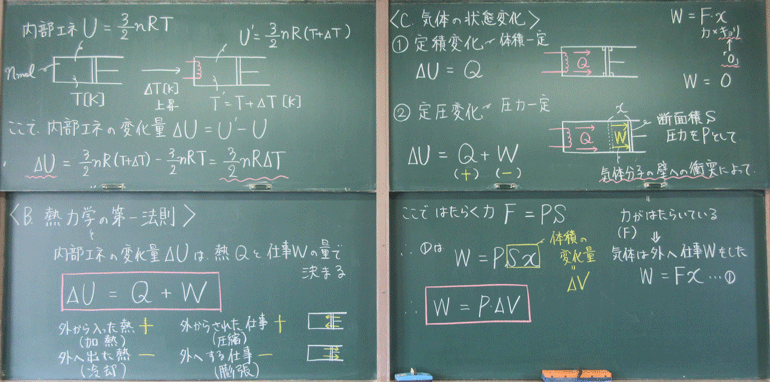 内部エネ U = 3/2 nRT
U' = 3/2 nR(T+ΔT)
n mol
T[K]
ΔT[K]
上昇
T' = T+ΔT [K]
ここで、内部エネの変化量 ΔU = U' - U
ΔU = 3/2 nR(T+ΔT) - 3/2 nRT = 3/2 nRΔT
〈B. 熱力学の第一法則〉
内部エネの変化量ΔUは、熱Qと仕事Wの量で
決まる
ΔU = Q + W
外から入った熱 +
(加熱)
外へ出た熱 -
(冷却)
外からされた仕事 +
(圧縮)
外へする仕事 -
(膨張)
〈C. 気体の状態変化〉
① 定積変化 〜 体積一定
ΔU = Q
Q
W = F・x
力×キョリ
"0"
W = 0
② 定圧変化 〜 圧力一定
ΔU = Q + W
(+) (-)
Q
W
x
断面積S
圧力をPとして
気体分子の壁への衝突によって、
力がはたらいている
(F)
気体は外へ仕事Wをした
W = Fx …①
ここではたらく力 F = PS
∴ ①は W = PSx
体積の
変化量
"
ΔV
∴ W = PΔV